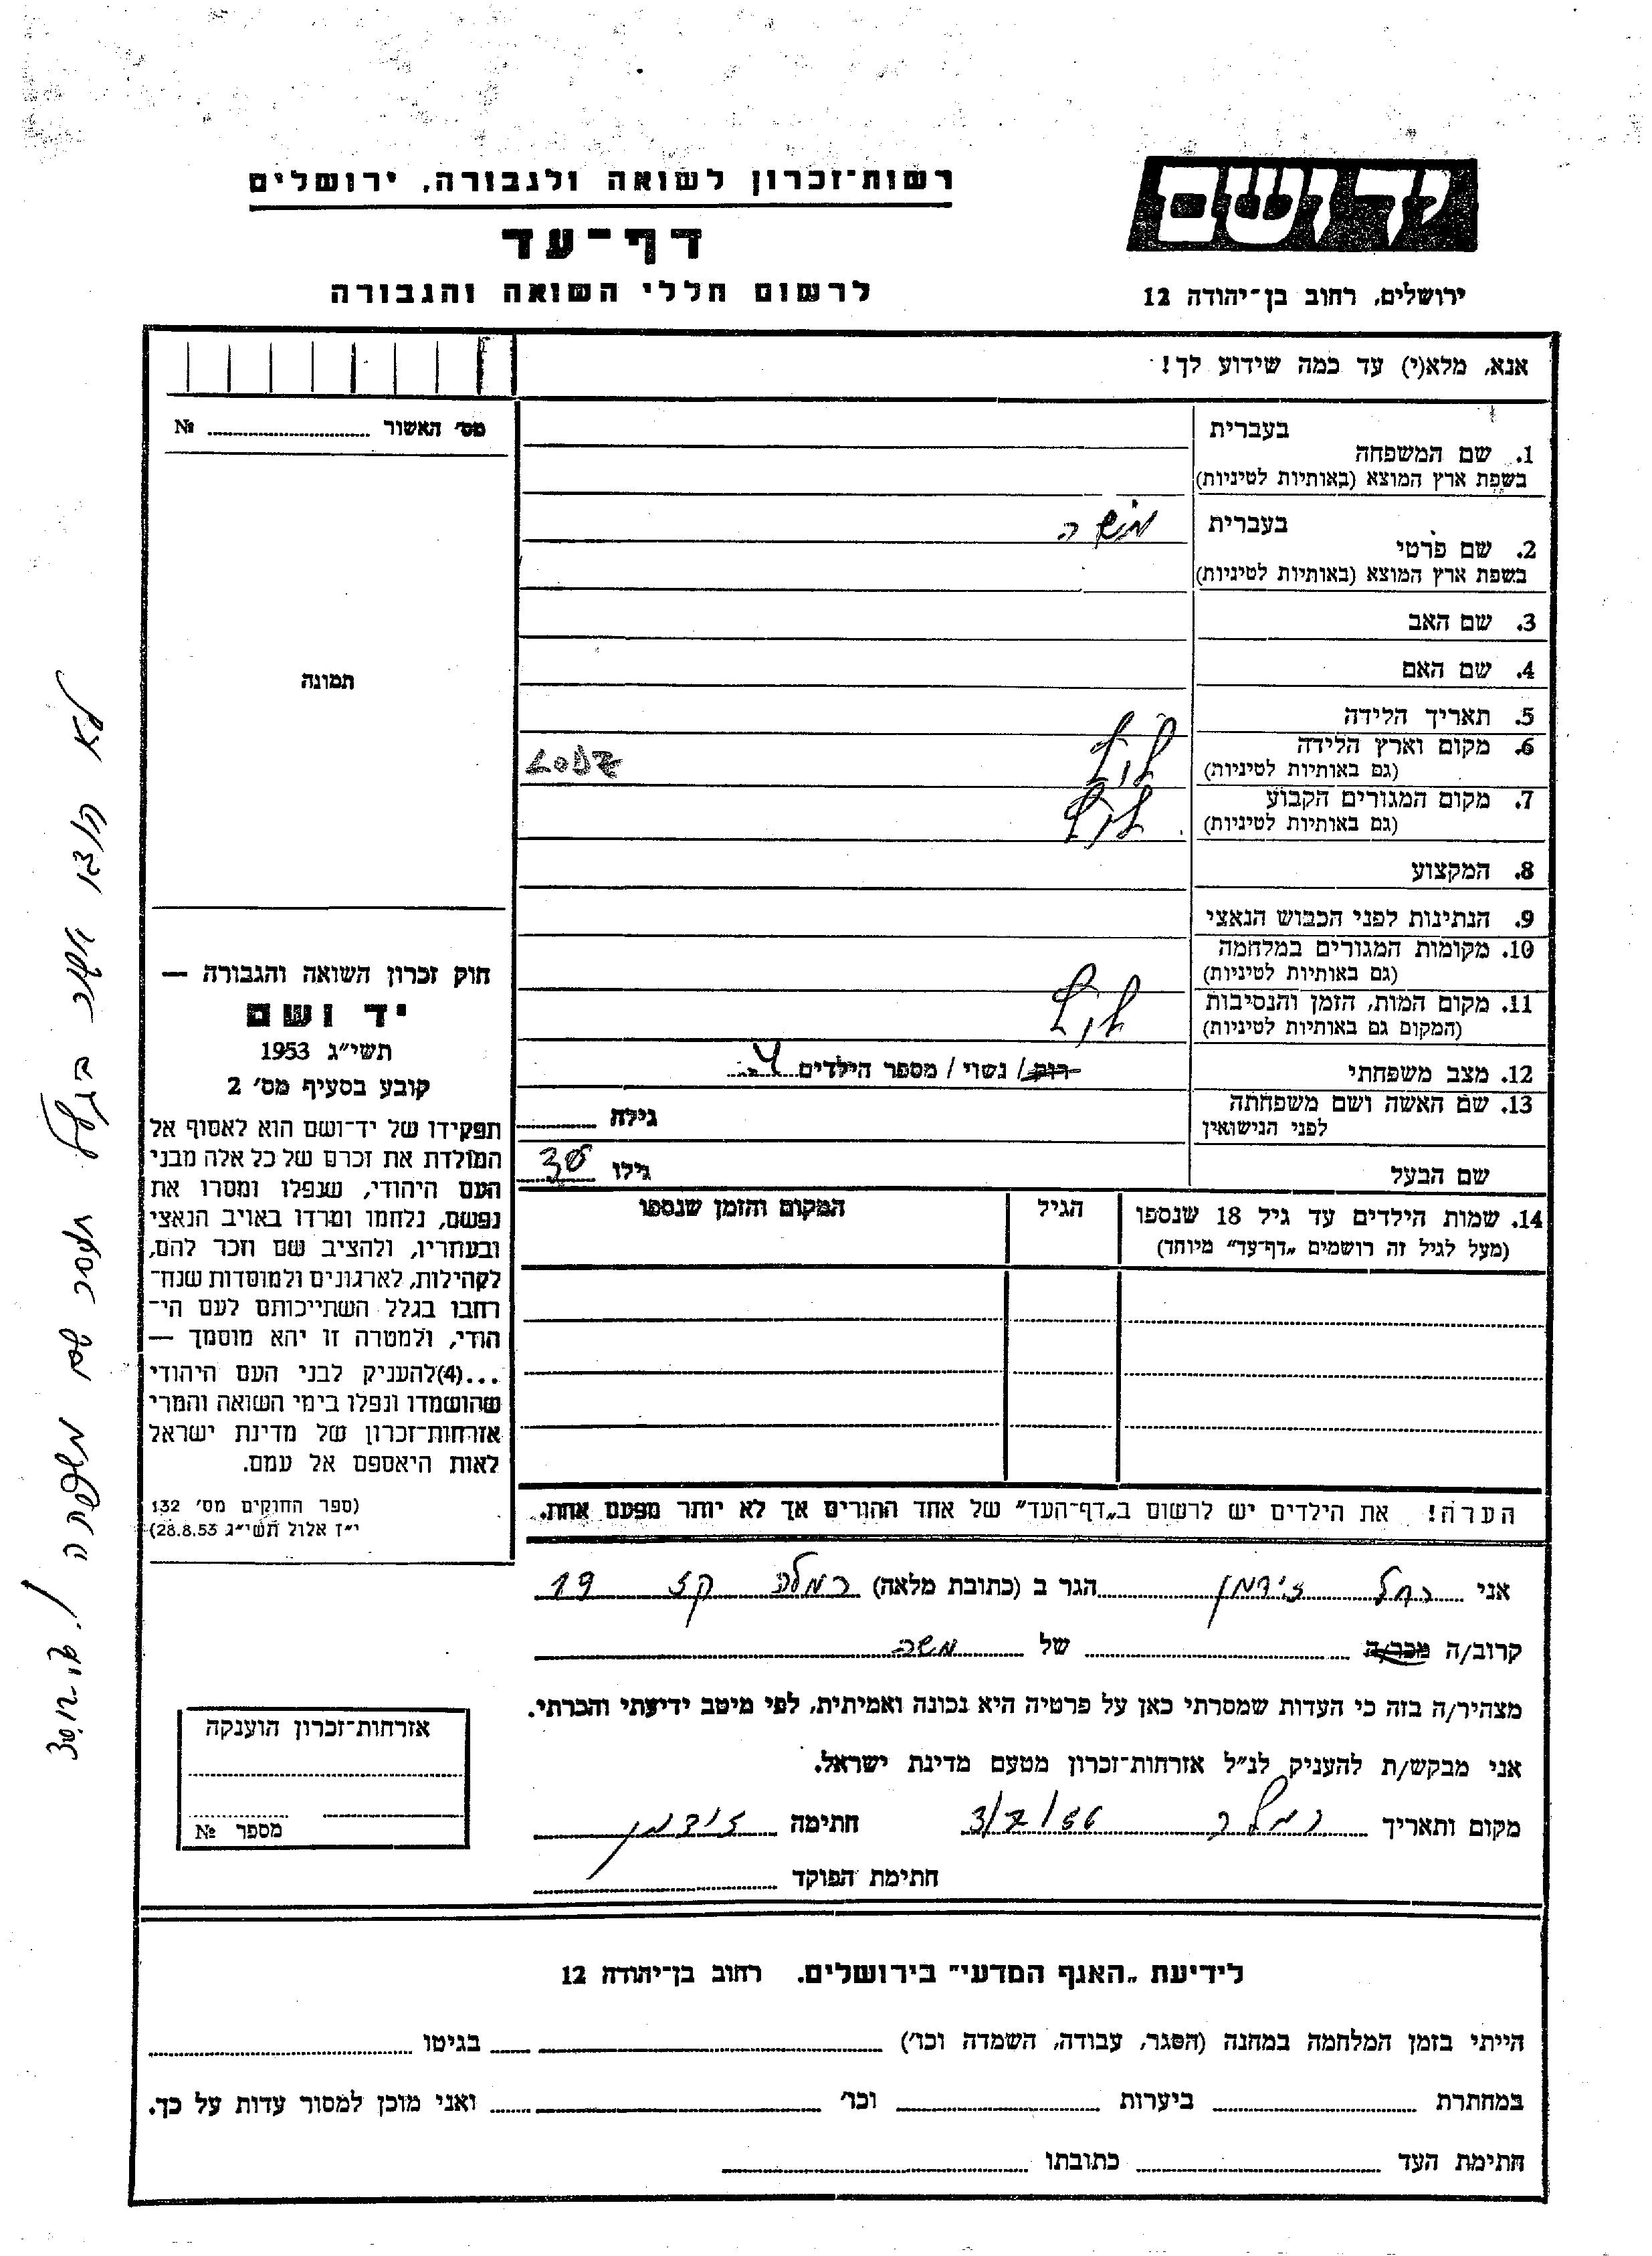 יד ושם
ירושלים, רחוב בן־יהודה 12
רשות־זכרון לשואה ולגבורה, ירושלים
דף־עד
לרשום חללי השואה והגבורה
אנא, מלא(י) עד כמה שידוע לך!
מס' האשור № 
בעברית
1. שם המשפחה
בשפת ארץ המוצא (באותיות לטיניות)
בעברית משה
2. שם פרטי
בשפת ארץ המוצא (באותיות לטיניות)
3. שם האב
4. שם האם
5. תאריך הלידה
6. מקום וארץ הלידה לודז'
(גם באותיות לטיניות)
7. מקום המגורים הקבוע לודז'
(גם באותיות לטיניות)
8. המקצוע
9. הנתינות לפני הכבוש הנאצי
10. מקומות המגורים במלחמה
(גם באותיות לטיניות)
11. מקום המות, הזמן והנסיבות לודז'
(המקום גם באותיות לטיניות)
12. מצב משפחתי רוק / נשוי / מספר הילדים 4
13. שם האשה ושם משפחתה
לפני הנישואין גילה
שם הבעל גילו 38
14. שמות הילדים עד גיל 18 שנספו הגיל המקום והזמן שנספו
(מעל לגיל זה רושמים „דף־עד" מיוחד)
הערה! את הילדים יש לרשום ב„דף־העד" של אחד ההורים אך לא יותר מפעם אחת.
תמונה
חוק זכרון השואה והגבורה —
יד ושם
תשי"ג 1953
קובע בסעיף מס' 2
תפקידו של יד־ושם הוא לאסוף אל
המולדת את זכרם של כל אלה מבני
העם היהודי, שנפלו ומסרו את
נפשם, נלחמו ומרדו באויב הנאצי
ובעוזריו, ולהציב שם וזכר להם,
לקהילות, לארגונים ולמוסדות שנח־
רבו בגלל השתייכותם לעם הי־
הודי, ולמטרה זו יהא מוסמך —
...(4)להעניק לבני העם היהודי
שהושמדו ונפלו בימי השואה והמרי
אזרחות־זכרון של מדינת ישראל
לאות היאספם אל עמם.
(ספר החוקים מס' 132
י"ז אלול תשי"ג 28.8.53)
אני רחל זידמן הגר ב (כתובת מלאה) רמלה 19
קרוב/ה מכר/ה של משה
מצהיר/ה בזה כי העדות שמסרתי כאן על פרטיה היא נכונה ואמיתית, לפי מיטב ידיעתי והכרתי.
אני מבקש/ת להעניק לנ"ל אזרחות־זכרון מטעם מדינת ישראל.
מקום ותאריך רמלה 3/7/56 חתימה זידמן
חתימת הפוקד
אזרחות־זכרון הוענקה
מספר №
לידיעת „האגף המדעי" בירושלים, רחוב בן־יהודה 12
הייתי בזמן המלחמה במחנה (הסגר, עבודה, השמדה וכו') בגיטו
במחתרת ביערות וכו' ואני מוכן למסור עדות על כך.
חתימת העד כתובתו
לא בגלל חוסר שם משפחה